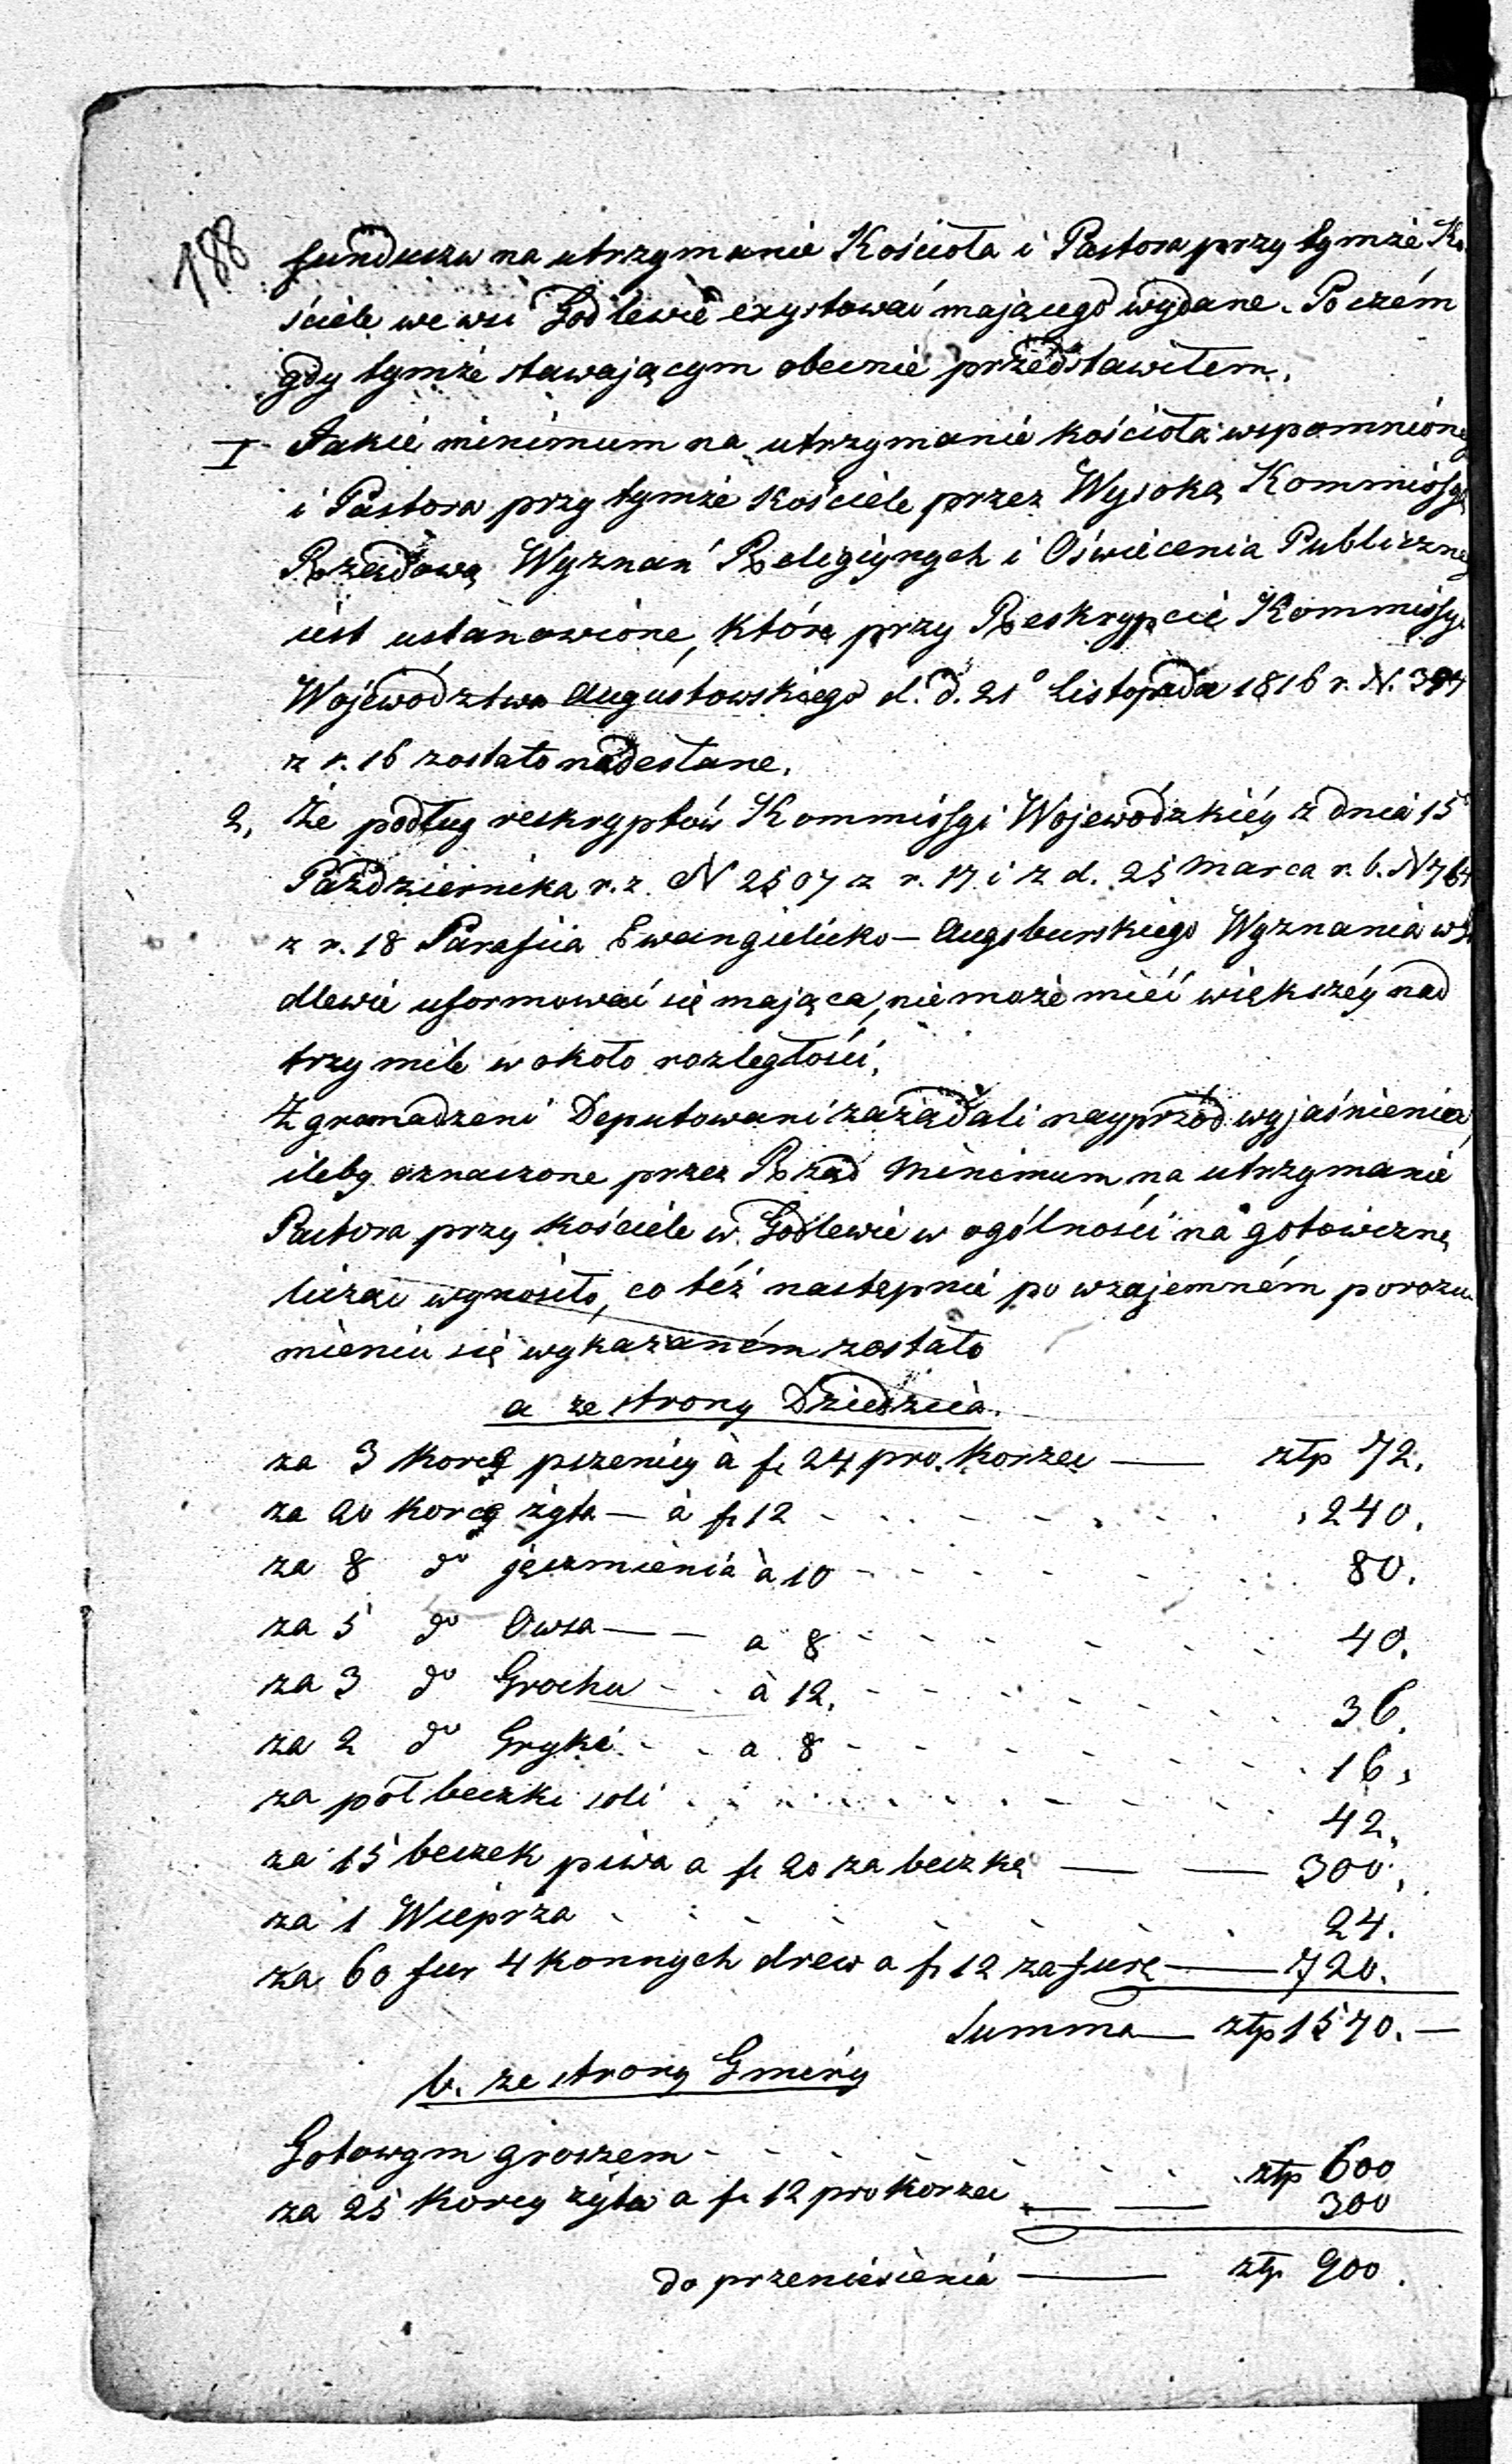 188
funduszu na utrzymanie Kościoła i Pastora przy tymże Ko
ściele we wsi Godlewie exystować mającego wydane. Poczém
gdy tymże stawającym obecnie przedstawiłem,
I Jakie minimum na utrzymanie kościoła wspomnione
i Pastora przy tymże kościele przez Wysoką Kommissyą
Rządową Wyznań Religiynych i Oświecenia Publiczne
iest ustanowione, które przy Reskrypcie Kommissyi
Województwa Augustowskiego d. d. 21° Listopada 1816 r. N.
z r. 16 zostało nadesłane.
2, Że podług reskryptów Kommissyi Wojewódzkiéy z dnia 15
Października r. z. N 2507 z r. 17 i z d. 25 Marca r. b. N 764
z r. 18 Parafiia Ewangielicko – Augsburskiego Wyznania w Go
dlewie uformować się mająca, nie może mieć większéy nad
trzy mile w około rozległości,
Zgromadzeni Deputowani zażądali nayprzód wyjaśnienia,
ileby oznaczone przez Rząd Minimum na utrzymanie
Pastora przy kościele w Godlewie w ogólności na gotowiznę
licząc wynosiło, co téż następnie po wzajemném porozu
mieniu się wykazaném zostało
a ze strony Dziedzica.
za 3 korcy pszenicy à fl 24 pro. Korzec — złp 72.
za 20 korcy żyta — à fl 12 - - - 240.
za 8 do jęczmienia à 10 - - - 80.
za 5 do Owsa — - a 8 - - - 40.
za 3 do Grochu - - à 12. - - - 36.
za 2 do Gryki - - a 8 - - - 16.
za pół beczki soli . . . 42.
za 15 beczek piwa a fl 20 za beczkę — — 300.
za 1 Wieprza - - - 24.
za 60 fur 4 konnych drew a fl 12 za furę — 720.
Summa — złp 1570. —
b. ze strony Gminy
Gotowym groszem - - - złp 600
za 25 korcy żyta a fl 12 pro korzec — — 300
do przeniesienia — złp 900.